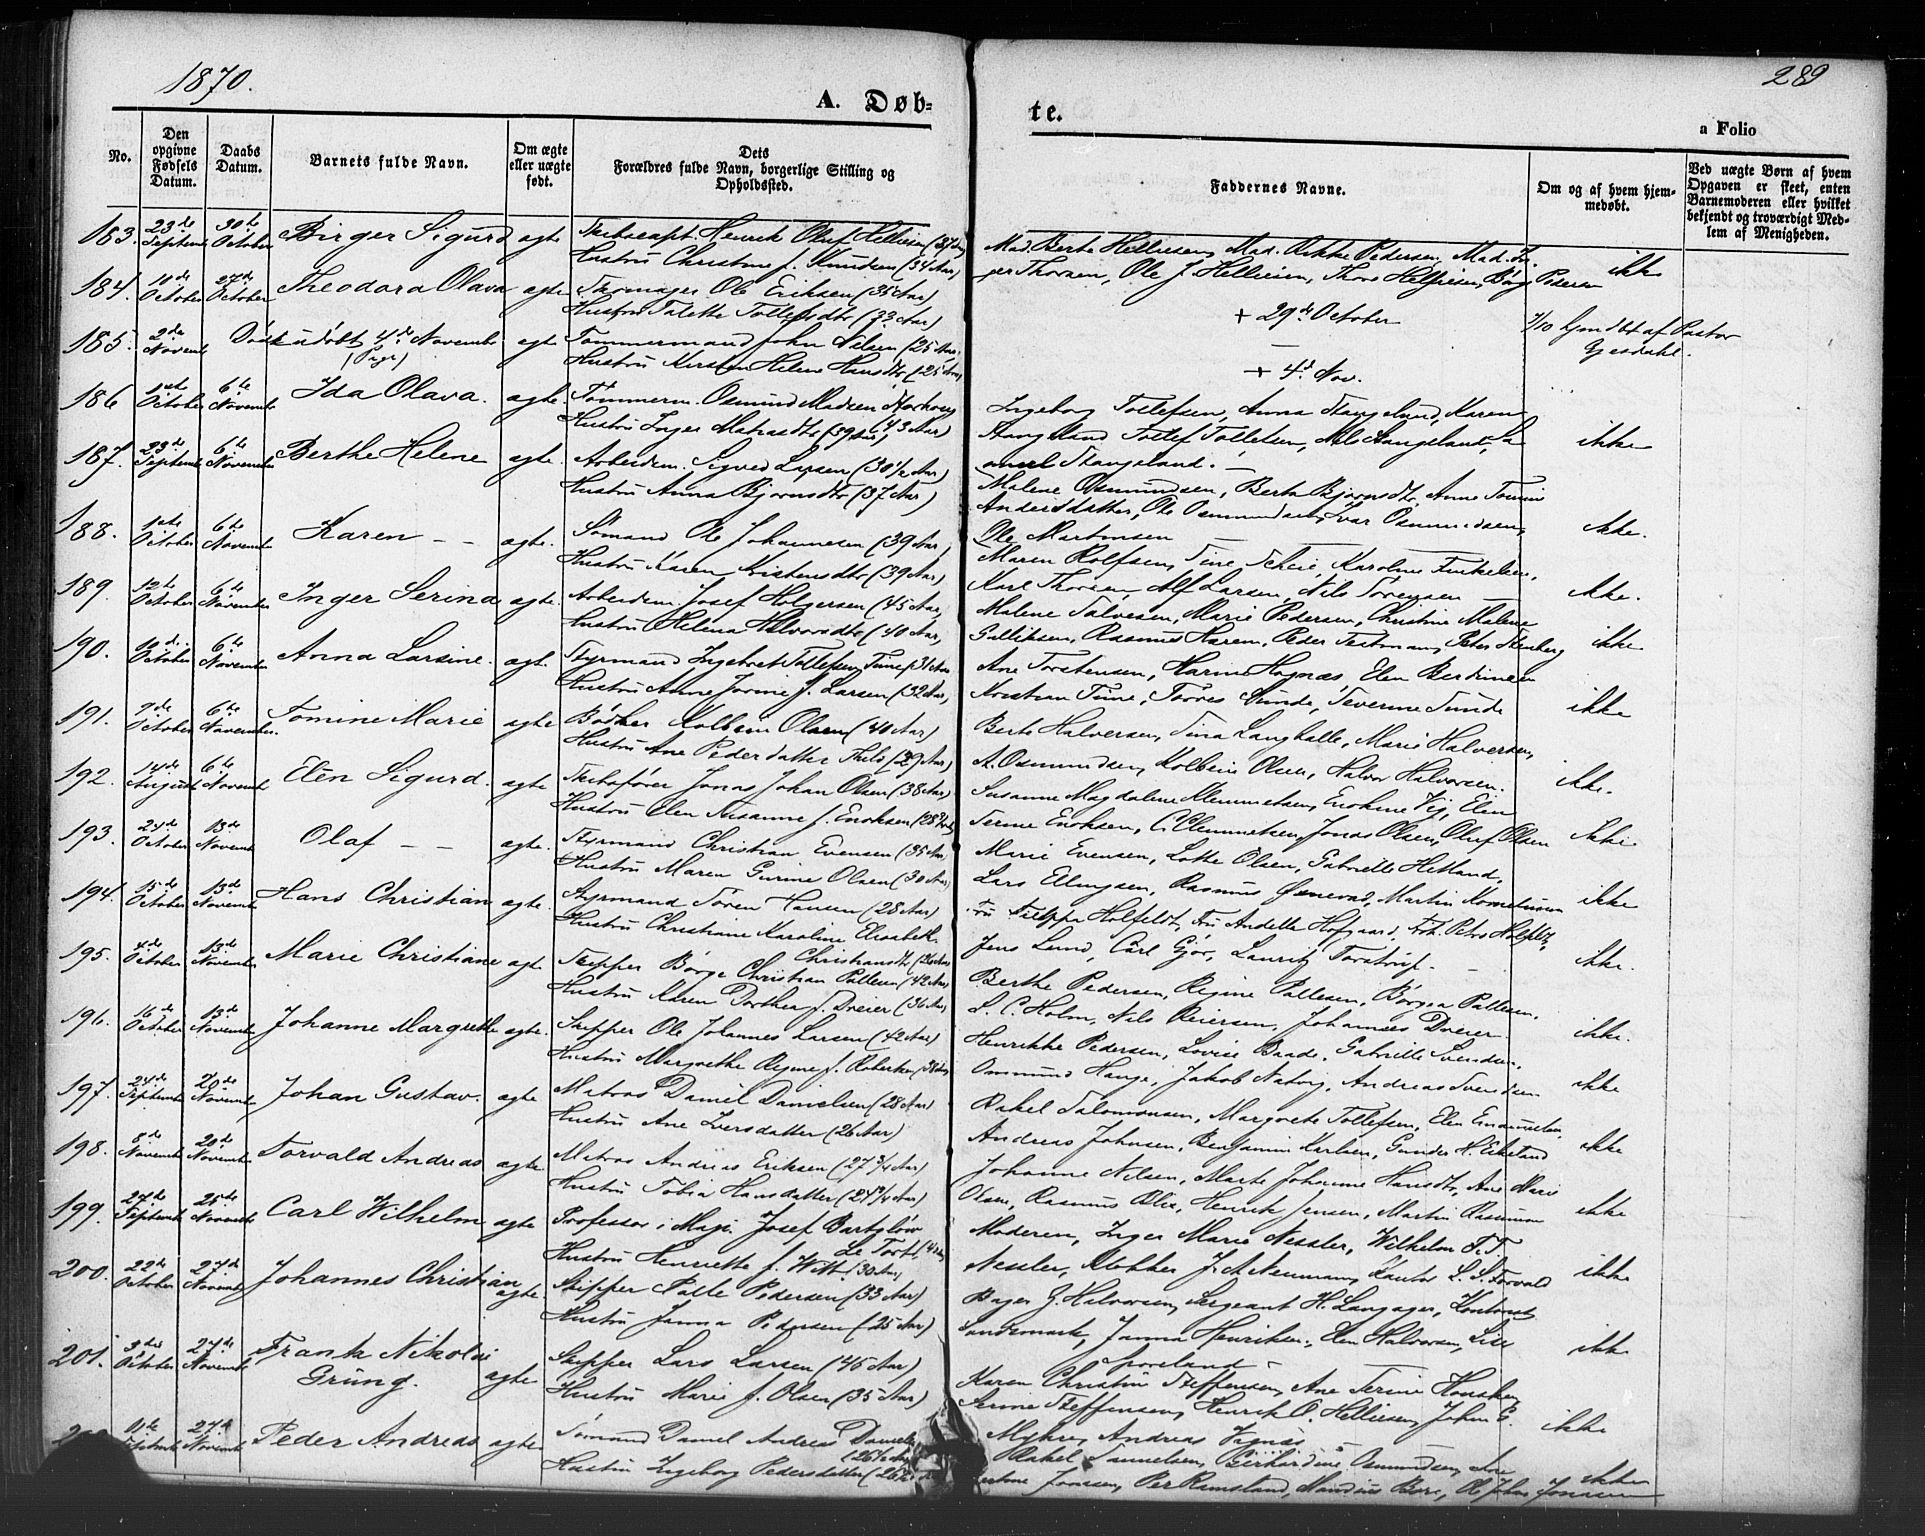 1870.
289
A. Døb-
te.
a Folio
No.
Den opgivne Fødsels Datum.
Daabs Datum.
Barnets fulde Navn.
Om ægte eller uægte født.
Dets Forældres fulde Navn, borgerlige Stilling og Opholdssted.
Faddernes Navne.
Om og af hvem hjemmedøbt.
Ved uægte Børn af hvem Opgaven er skeet, enten Barnemoderen eller hvilket bekjendt og troværdigt Medlem af Menigheden.
183. 23de Septemb 30te October Birger Sigurd ægte Skibscapt. Henrik Oluf Helliesen (37 Aar)
Hustru Christine f. Knudsen (34 Aar)
Mad. Berte Helliesen, Mad. Rikke Pedersen, Mad.
Thorsen, Ole J. Helliesen, Thore Helliesen, Børge Pedersen ikke
184. 10de October 27de October Theodora Olava ægte Skomager Ole Eriksen (35 Aar)
Hustru Talette Tollefsdtr (33 Aar)
+ 29de October
7/10 hjemdbt af Pastor Gjesdahl.
185. 2de Novemb Død udøbt 4de Novemb (Pige) ægte Tømmermand John Nilsen (25 Aar)
Hustru Kirsten Helene Hansdtr (25 Aar)
+ 4de Nov.
186 1ste October 6te Novemb Ida Olava. ægte. Tømmerm. Osmund Madsen (43 Aar)
Hustru Inger Matsdtr (39 Aar)
Ingeborg Tollefsen, Anna Stangeland, Karen
Stangeland, Tollef Tollefsen, Nils Stangeland, Sa
muel Stangeland. ikke
187. 23de Septemb 6te Novemb Berthe Helene ægte. Arbeidsm. Sigved Larsen (30 1/2 Aar)
Hustru Anna Bjørnsdtr (37 Aar)
Malene Osmundsen, Berta Bjørnsdtr, Anne Tomine
Andersdatter, Ole Osmundsen, Ivar Osmundsen,
Ole Martinsen ikke.
188. 1ste October 6te Novemb Karen - - ægte. Sømand Ole Johannesen (39 Aar)
Hustru Karen Kistensdtr (39 Aar)
Maren Rolfsen, Tine Scheie, Karoline Terkelsen,
Karl Thorsen, Alf Larsen, Nils Sørensen - ikke.
189. 12te October 6te Novemb Inger Serina ægte. Arbeidsm. Josef Holgersen (45 Aar)
Hustru Helena Halvorsdtr (40 Aar)
Malene Salvesen, Marie Pedersen, Christine Malene
Gulliksen, Rasmus Harem, Peder Testman, Peter Stenberg ikke
190. October 6te Novemb Anna Larsine. ægte. Styrmand Ingebret Tollefsen Tune (31 Aar)
Hustru Anne Jorine f. Larsen (32 Aar)
Ane Torstensen, Marine Hognæs, Elen Berdinesen
Kristian Tune, Torres Sunde, Severine Sunde ikke
191. 9de October 6te November. Tomine Marie ægte Bødker Kolbein Olsen (40 Aar)
Hustru Ane Pedersdatter Thilo (29 Aar)
Berte Halvorsen, Tina Langhalle, Marie Halvorsen,
A. Osmundsen, Kolbein Olsen, Halvor Halvorsen. ikke.
192. 14de August 6te Novemb Elen Sigurd. ægte Skibsfører Jonas Johan Olsen (38 Aar)
Hustru Elen Susanne f. Enoksen (28 Aar)
Susanne Magdalene Clemmetsen, Enokine Vig, Elen
Serine Enoksen, C. Clemmetsen, Jonas Olsen, Oluf Olsen ikke
193. 24de October 13de Novemb Olaf - - ægte. Styrmand Christian Evensen (35 Aar)
Hustru Maren Gurine Olsen (30 Aar)
Marie Evensen, Lotte Olsen, Gabrielle Hetland,
Lars Ellingsen, Rasmus Ønevad, Martin Korneliussen ikke
194. 15de October 13de Novemb Hans Christian ægte. Styrmand Søren Hansen (28 Aar)
Hustru Christiane Karoline Elisabeth Christiansdtr (26 Aar)
Fru Seeppe Holfeldt, Fru Andelle Hofgaard, Frk. Petra Holfeldt,
Jens Lund, Carl Gjør, Lauritz Torstrup. - ikke.
195. 4de October 13de Novemb Marie Christiane ægte Skipper Børge Christian Pallesen (42 Aar)
Hustru Karen Dorthea f. Dreier (36 Aar)
Berthe Pedersen, Regine Pallesen, Børgea Pallesen,
L. C. Holm, Nils Reiersen, Johannes Dreier ikke.
196. 16de October 13de Novemb Johanne Margrethe ægte. Skipper Ole Johannes Larsen (42 Aar)
Hustru Margrethe Regine f. Robertsen (38 Aar)
Henrikke Pedersen, Lovise Baade, Gabrielle Svendsen,
Ommund Hauge, Jakob Natvig, Andreas Svendsen ikke
197. 24de Septemb 20de Novemb Johan Gustav. ægte Matros Daniel Danielsen (28 Aar)
Hustru Ane Iversdatter (26 Aar)
Rakel Salomonsen, Margrete Tollefsen, Elen Emanuelsen,
Andreas Johnsen, Benjamin Karlsen, Gunder H. Eikeland ikke
198. 8de Novemb 20de Novemb Torvald Andreas ægte Matros Andreas Eriksen (27 3/4 Aar)
Hustru Tobia Hansdatter (24 3/4 Aar)
Johanne Nilsen, Marte Johanne Hansdtr, Ane Marie
Olsen, Rasmus Olsen, Henrik Jensen, Martin Rasmussen ikke
199. 27de Septemb 25de Novemb Carl Wilhelm ægte Professor i Magi. Josef Bartglow Le Tort (42 Aar)
Hustru Henriette f. Witt (30 Aar)
Moderen, Inger Marie Nessler, Wilhelm F. T.
Nessler, Klokker J. A. Neumann, Kantor L. S. Torvald ikke
200. 22de October 27de Novemb Johannes Christian ægte Skipper Palle Pedersen (33 Aar)
Hustru Janna Pedersen (25 Aar)
Bager J. Halvorsen, Sergeant H. Langager, Kontorist
Sandsmark, Janna Henriksen, Elen Halvorsen, Lise
Sporeland ikke
201. October 27de Novemb Frank Nikolai Grüng. ægte Skipper Lars Larsen (45 Aar)
Hustru Marie f. Olsen (35 Aar)
Karen Christine Steffensen, Ane Serine Hausken,
Serine Steffensen, Henrik O. Helliesen, John G.
Myhre, Andreas Vignæs ikke
11te Septemb 27de Novemb Peder Andreas ægte Sømand Daniel Andreas Daniels (26 1/2 Aar)
Hustru Ingeborg Pedersdatter (26
Rakel Samuelsen, Berhardine Osmundsen,
Jonassen, Per Ramsland, Mandius Bore, Ole John Jonassen ikke